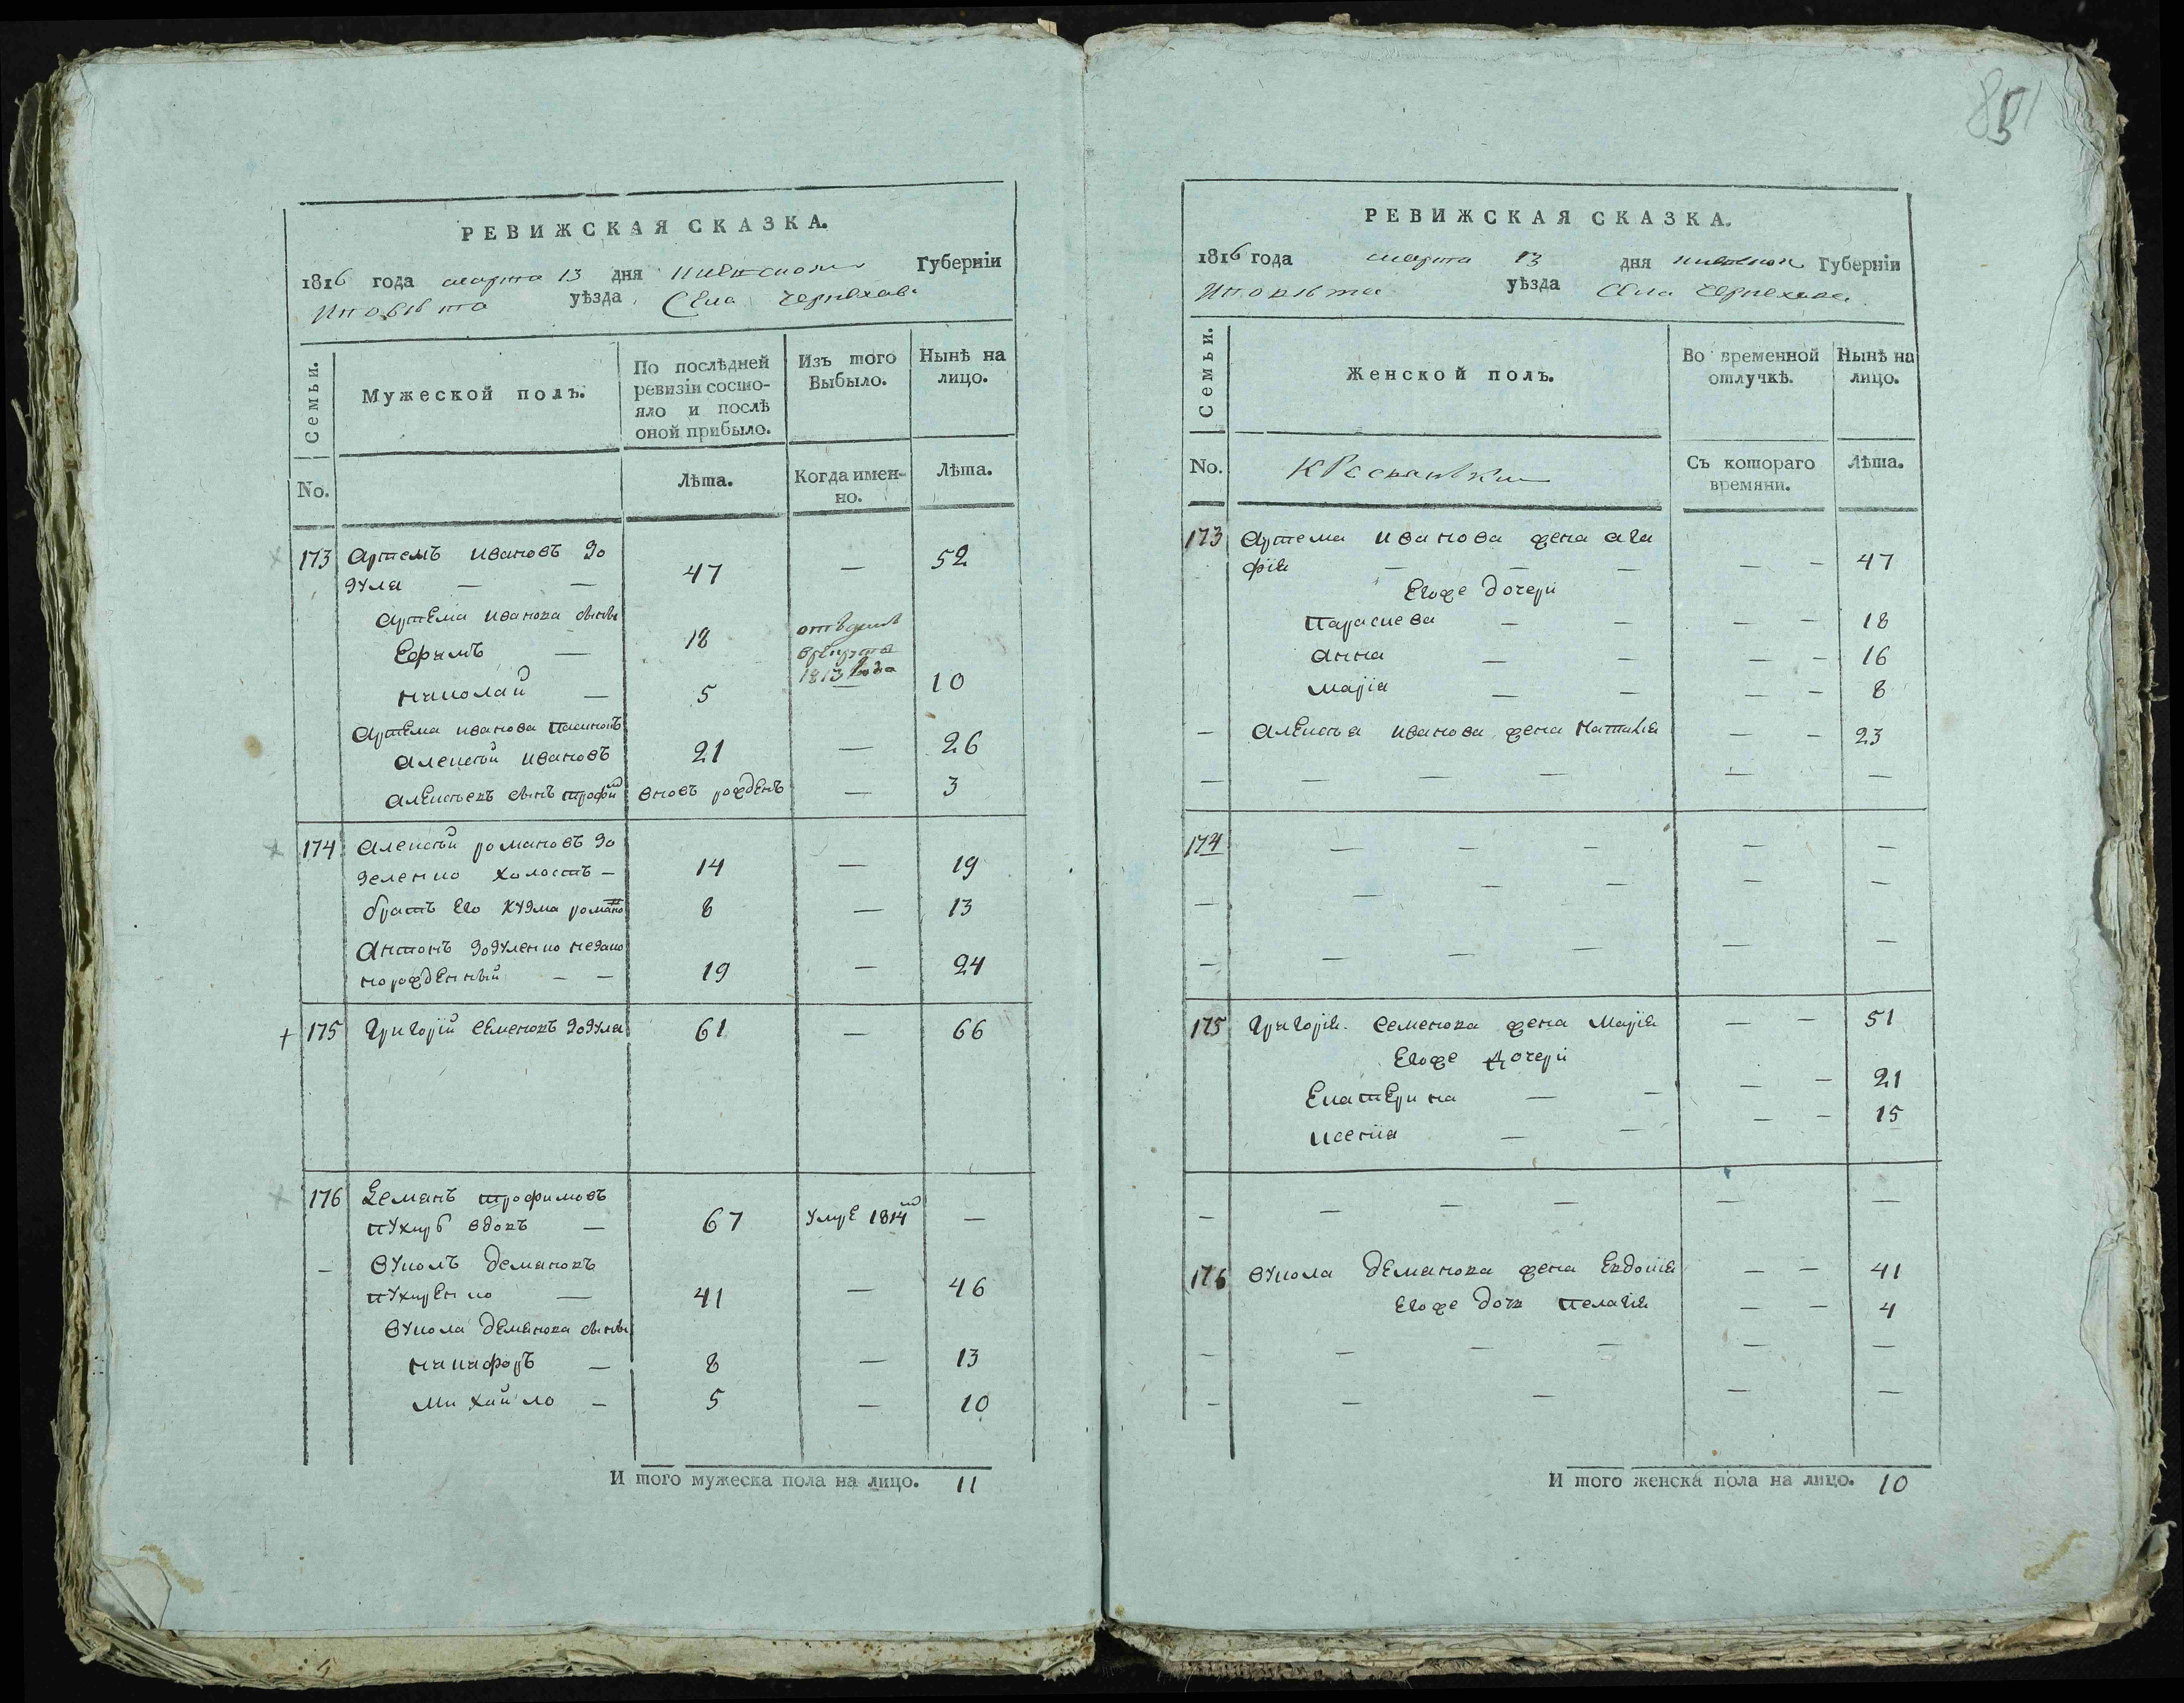 851
РЕВИЖСКАЯ СКАЗКА.
1816 года марта 13 дня Киевской Губерніи
уѣзда Села Черняхова
Семьи.
Мужеской полъ.
По послѣдней
ревизіи состо-
яло и послѣ
оной прибыло.
Изъ того
Выбыло.
Нынѣ на
лицо.
No.
Лѣта.
Когда имен-
но.
Лѣта.
173 Артемъ Ивановъ Зо
зуля — — 47 — 52
Артема Иванова сыны
Ефимъ — 18 отъданъ
врекруты
1813 года
Николай — 5 — 10
Артема Иванова
Алексѣй Ивановъ 21 — 26
Алексѣевъ сынъ Трофим вновь рожденъ — 3
174 Алексѣй Романовъ Зо
зуленко холостъ — 14 — 19
братъ его Кузма Романо 8 — 13
Антонъ Зозуленко незако
норожденный — — 19 — 24
175 Григорій Семеновъ Зозуля 61 — 66
176 Демянъ Трофимовъ
вдовъ — 67 умре 1814 —
— Вуколъ Демяновъ
— 41 — 46
Вукола Демянова сыны
Никифоръ — 8 — 13
Михайло — 5 — 10
И того мужеска пола на лицо. 11
РЕВИЖСКАЯ СКАЗКА.
1816 года марта 13 дня Киевской Губерніи
уѣзда Села Черняхова
Семьи.
Женской полъ.
Во временной
отлучкѣ.
Нынѣ на
лицо.
No.
Съ котораго
времяни.
Лѣта.
173 Артема Иванова жена Ага
фія — — — — — 47
Егоже дочери
Параскева — — — — 18
Анна — — — — 16
Марія — — — — 8
— Алексѣя Иванова жена Наталія — — 23
— — — — — —
174 — — — — —
— — — — — —
— — — — — —
175 Григорія Семенова жена Марія — — 51
Егоже дочери
Екатерина — — — — 21
Ксенія — — — — 15
— — — — — —
176 Вукола Демянова жена Евдокія — — 41
Егоже дочь Пелагія — — 4
— — — — — —
— — — — —
И того женска пола на лицо. 10